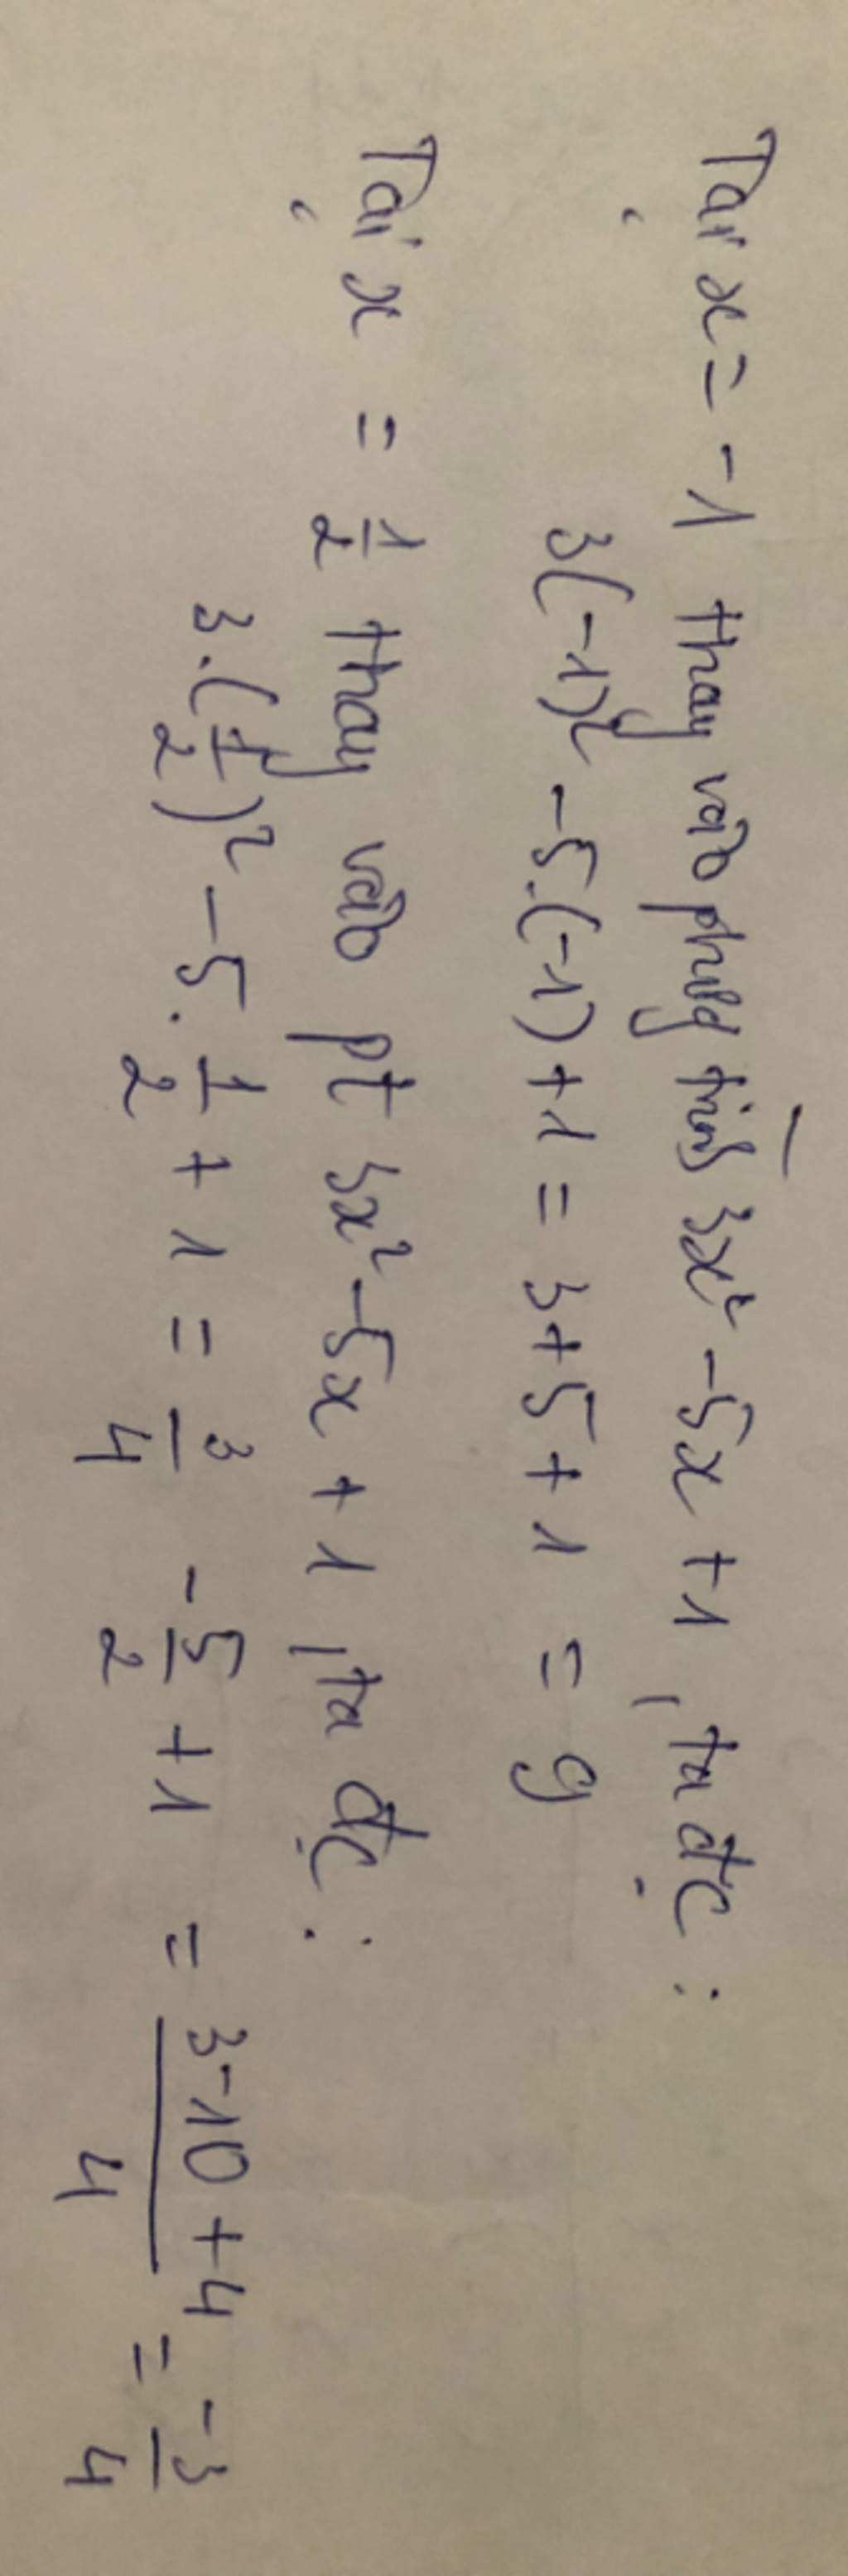 Tại x = -1 thay vào phg trình 3x² - 5x + 1, ta đc :
3(-1)² - 5.(-1) + 1 = 3 + 5 + 1 = 9
Tại x = 1/2 thay vào pt 3x² - 5x + 1, ta đc :
3.(1/2)² - 5. 1/2 + 1 = 3/4 - 5/2 + 1 = (3-10+4)/4 = -3/4